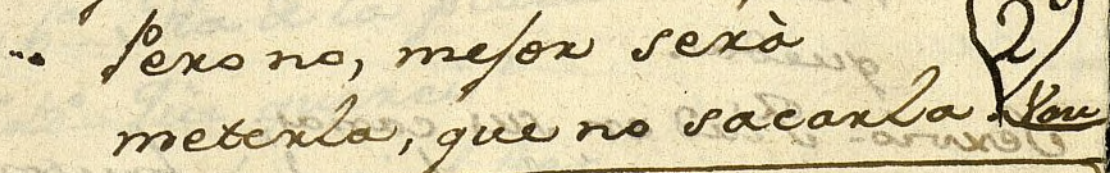 Pero no, mejor serà 2º
meterla, que no sacarla.